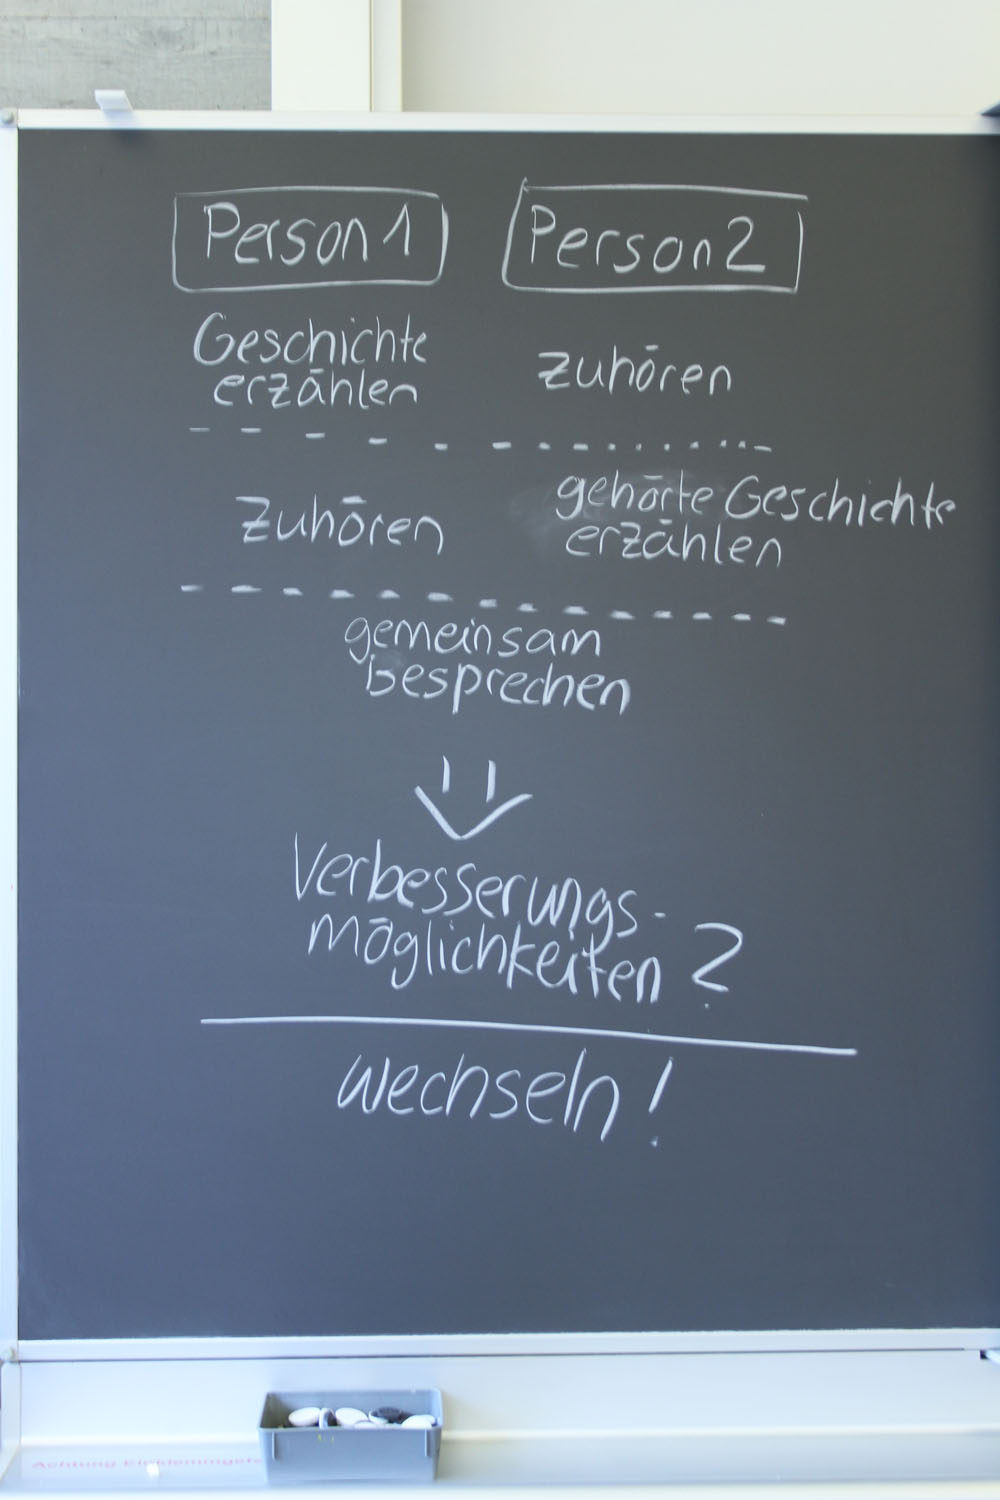 Person 1
Person 2
Geschichte
erzählen
zuhören
zuhören
gehörte Geschichte
erzählen
gemeinsam
besprechen
Verbesserungs-
möglichkeiten ?
wechseln !
Achtung